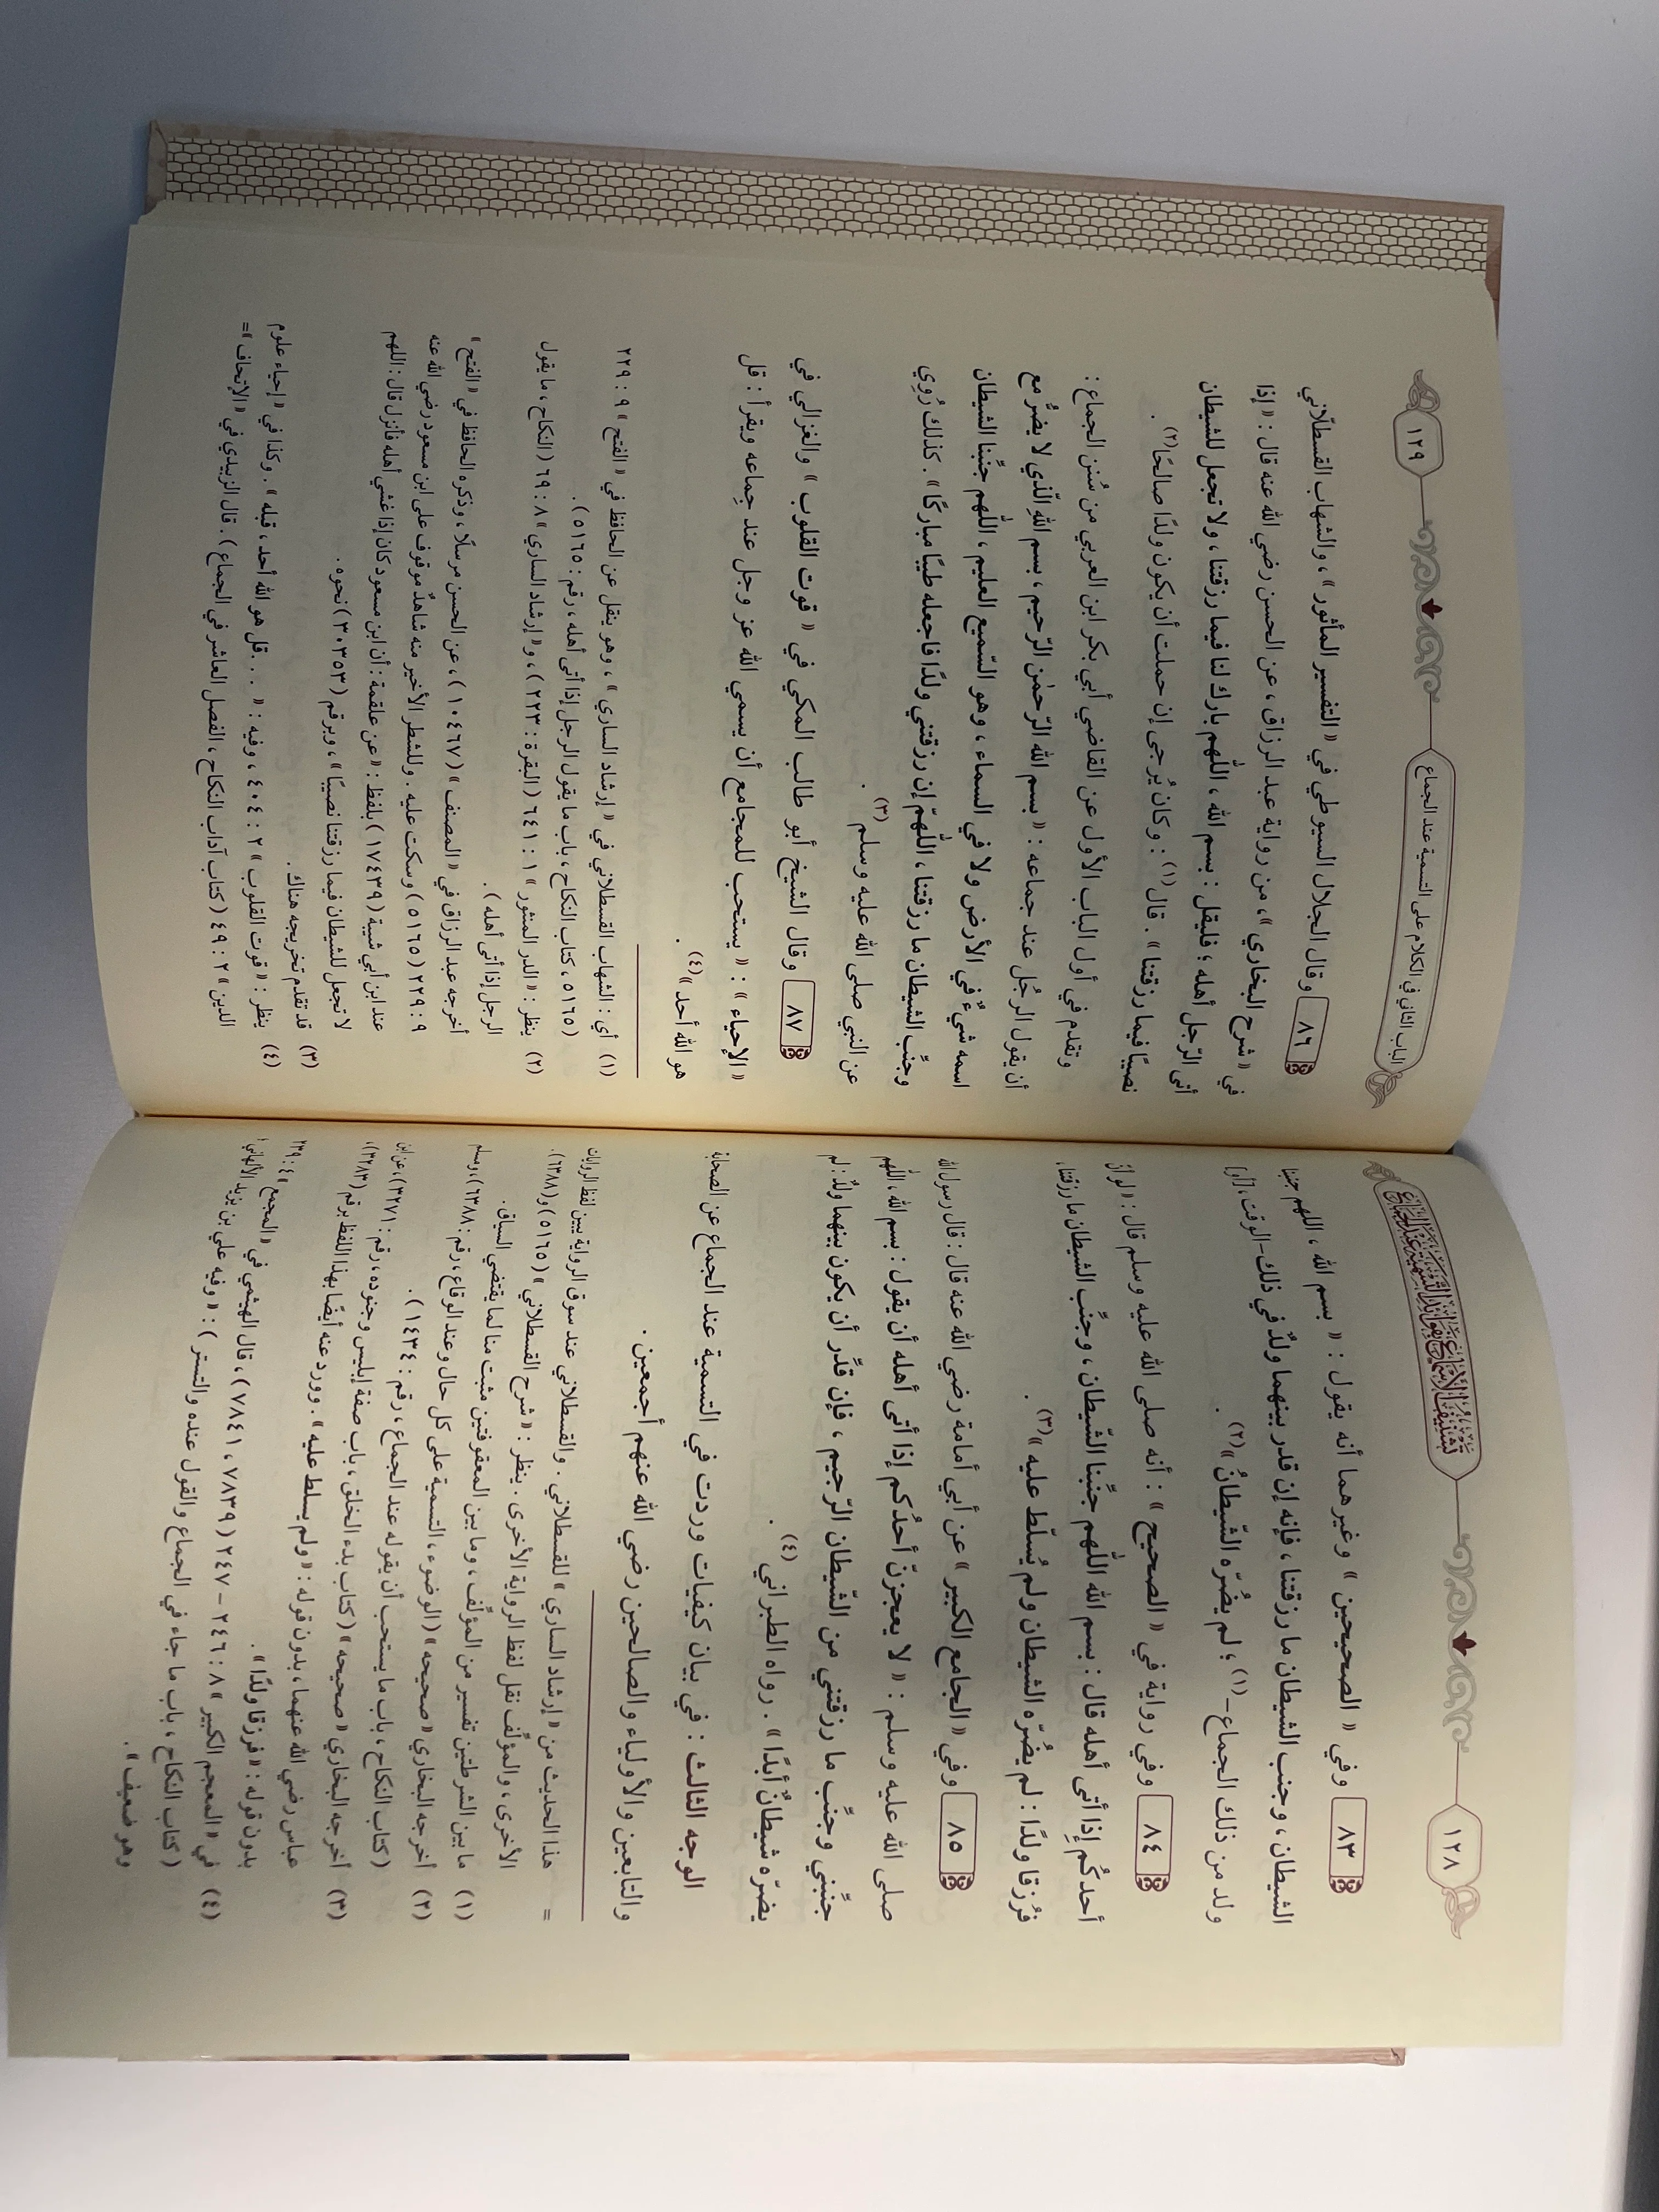 ١٢٨
تشنيف الأسماع بفوائد التسمية عند الجماع
٨٣ وفي « الصحيحين » وغيرهما أنه يقول : « بسم الله ، اللهم جنبنا
الشيطان ، وجنب الشيطان ما رزقتنا ، فإنه إن قدر بينهما ولدٌ في ذلك -الوقت ، أو
ولد من ذلك الجماع-(١)، لم يضُرّه الشّيطانُ »(٢) .
٨٤ وفي رواية في « الصحيح » : أنه صلى الله عليه وسلم قال : « لو أنّ
أحدكُم إِذا أتى أهله قال : بسم الله اللّهم جنِّبنا الشّيطان ، وجنِّب الشيطان ما رزقتنا،
فرُزقا ولدًا : لم يضُرّه الشيطان ولم يُسلّط عليه »(٣) .
٨٥ وفي « الجامع الكبير » عن أبي أمامة رضي الله عنه قال : قال رسول الله
صلى الله عليه وسلم : « لا يعجزنّ أحدُكم إذا أتى أهله أن يقول : بسم الله ، اللّهم
جنِّبني وجنِّب ما رزقتني من الشّيطان الرّجيم ، فإن قدِّر أن يكون بينهما ولدٌ : لم
يضرّه شيطانٌ أبدًا » . رواه الطبراني(٤) .
الوجه الثالث : في بيان كيفيات وردت في التسمية عند الجماع عن الصحابة
والتابعين والأولياء والصالحين رضي الله عنهم أجمعين .
= هذا الحديث من « إرشاد الساري » للقسطلاني . والقسطلاني عند سوق الرواية يبين لفظ الروايات
الأخرى ، والمؤلِّف نقل لفظ الرواية الأخرى . ينظر : « شرح القسطلاني » (٥١٦٥) و(٦٣٨٨).
(١) ما بين الشرطتين تفسير من المؤلِّف ، وما بين المعقوفتين مثبت منا لما يقتضي السياق .
(٢) أخرجه البخاري « صحيحه » (الوضوء ، التسمية على كل حال وعند الوقاع ، رقم: ٦٣٨٨) ، ومسلم
(كتاب النكاح ، باب ما يستحب أن يقوله عند الجماع ، رقم : ١٤٣٤) .
(٣) أخرجه البخاري « صحيحه » (كتاب بدء الخلق ، باب صفة إبليس وجنوده ، رقم : ٣٢٧١) ، عن ابن
عباس رضي الله عنهما ، بدون قوله : « ولم يسلط عليه » . وورد عنه أيضًا بهذا اللفظ برقم (٣٢٨٣)،
بدون قوله : « فرزقا ولدًا » .
(٤) في « المعجم الكبير » ٨ : ٢٤٦ – ٢٤٧ (٧٨٣٩ ، ٧٨٤١) ، قال الهيثمي في « المجمع » ٤ : ٢٣٩
(كتاب النكاح ، باب ما جاء في الجماع والقول عنده والتستر) : « وفيه علي بن يزيد الألهاني ،
وهو ضعيف » .
الباب الثاني في الكلام على التسمية عند الجماع
١٢٩
٨٦ وقال الجلال السيوطي في « التفسير المأثور » ، والشهاب القسطلّاني
في « شرح البخاري » ، من رواية عبد الرزاق ، عن الحسن رضي الله عنه قال : « إذا
أتى الرّجل أهله ؛ فليقل : بسم الله ، اللّهم بارك لنا فيما رزقتنا ، ولا تجعل للشيطان
نصيبًا فيما رزقتنا » . قال(١) : وكان يُرجى إن حملت أن يكون ولدًا صالحًا(٢) .
وتقدم في أول الباب الأول عن القاضي أبي بكر ابن العربي من سُنن الجماع :
أن يقول الرجُل عند جماعه : « بسم الله الرّحمٰن الرّحيم ، بسم اللهِ الّذي لا يضُرّ مع
اسمه شيءٌ في الأرض ولا في السماء ، وهو السّميع العليم ، اللّهم جنِّبنا الشيطان
وجنِّب الشيطان ما رزقتنا ، اللّهمّ إن رزقتني ولدًا فاجعله طيبًا مباركًا » . كذلك رُوِي
عن النبي صلى الله عليه وسلم(٣) .
٨٧ وقال الشيخ أبو طالب المكي في « قوت القلوب » والغزالي في
« الإحياء » : « يستحب للمجامع أن يسمي الله عز وجل عند جِماعه ويقرأ : قل
هو الله أحد »(٤) .
(١) أي : الشهاب القسطلاني في « إرشاد الساري » ، وهو ينقل عن الحافظ في « الفتح » ٩ : ٢٢٩
(٥١٦٥ ، كتاب النكاح ، باب ما يقول الرجل إذا أتى أهله ، رقم : ٥١٦٥) .
(٢) ينظر : « الدر المنثور » ١ : ٦٤١ (البقرة : ٢٢٣) ، و « إرشاد الساري » ٨ : ٦٩ (النكاح ، ما يقول
الرجل إذا أتى أهله) .
أخرجه عبد الرزاق في « المصنف » (١٠٤٦٧) ، عن الحسن مرسلًا ، وذكره الحافظ في « الفتح »
٩ : ٢٢٩ (٥١٦٥) وسكت عليه . وللشطر الأخير منه شاهدٌ موقوف على ابن مسعود رضي الله عنه
عند ابن أبي شيبة (١٧٤٣٩) بلفظ : « عن علقمة : أن ابن مسعود كان إذا غشي أهله فأنزل قال : اللهم
لا تجعل للشيطان فيما رزقتنا نصيبًا » ، وبرقم (٣٠٣٥٣) نحوه .
(٣) قد تقدم تخريجه هناك .
(٤) ينظر : « قوت القلوب » ٢ : ٤٠٤ ، وفيه : « . . . قل هو الله أحد ، قبله » . وكذا في « إحياء علوم
الدين » ٢ : ٤٩ (كتاب آداب النكاح ، الفصل العاشر في الجماع) . قال الزبيدي في « الإتحاف » =